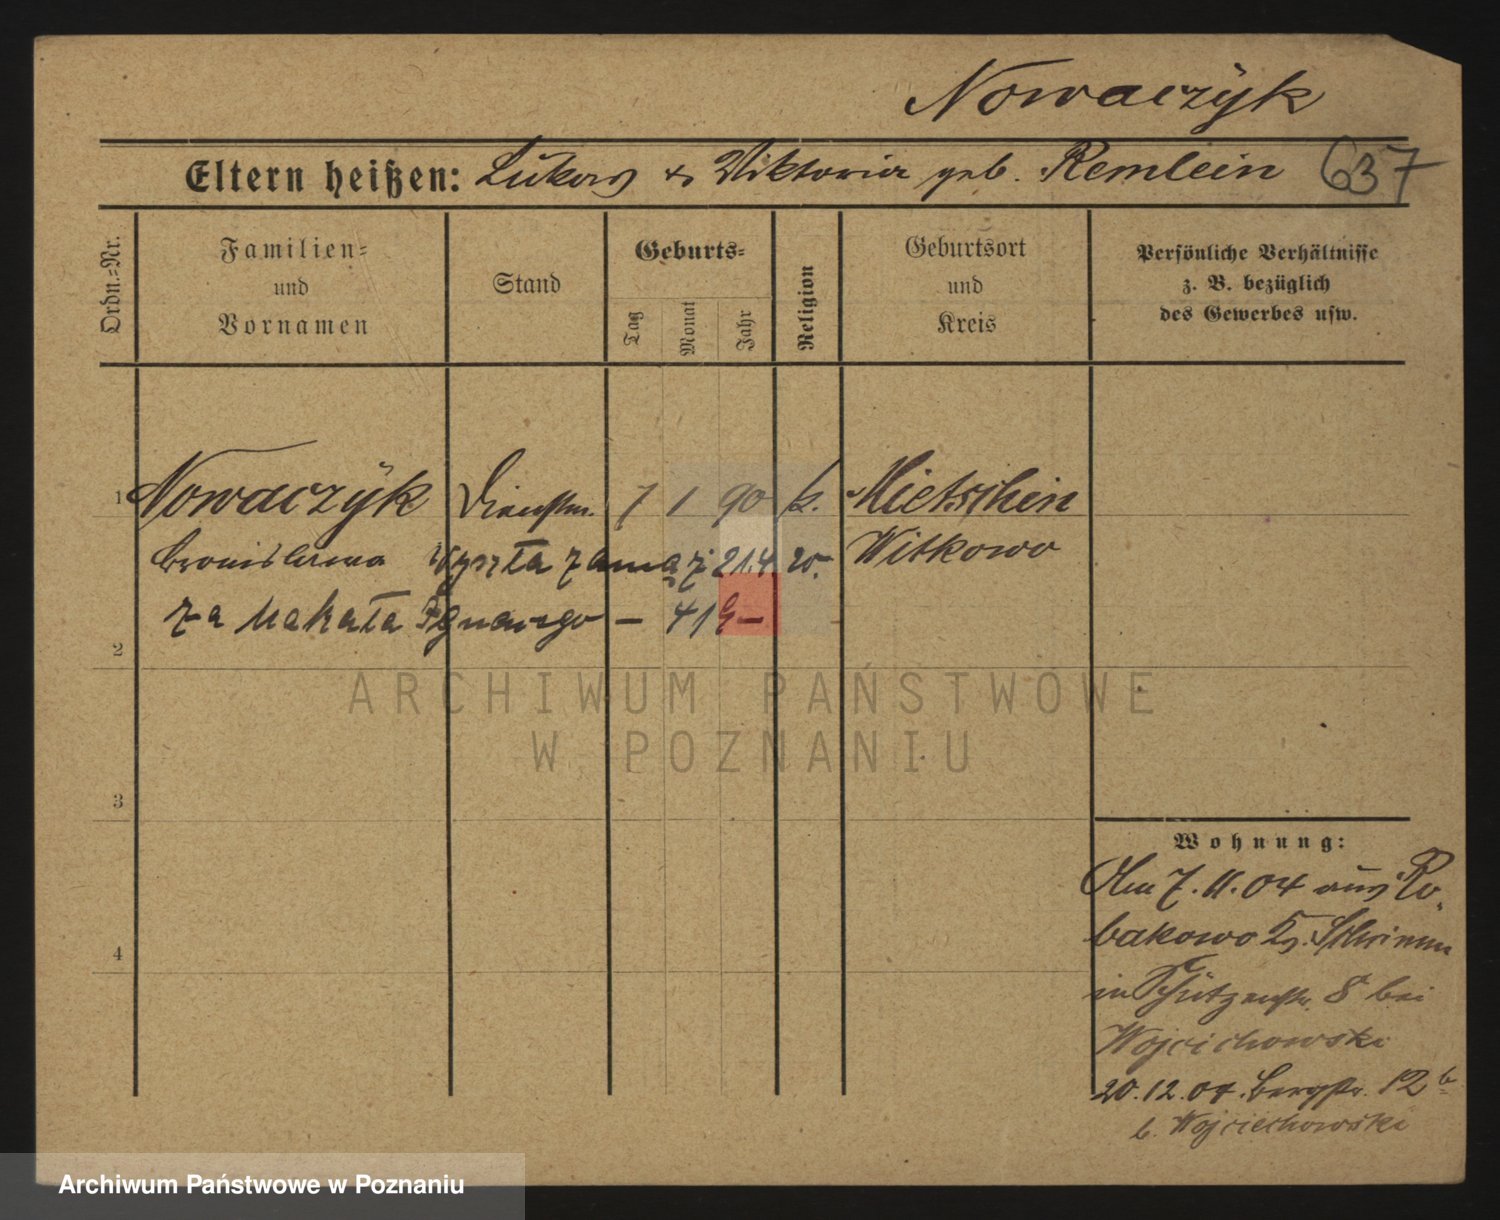 Nowaczÿk
Eltern heißen: Lukas & Viktoria geb. Remlein 637
Ordn.=Nr.
Familien=
und
Vornamen
Stand
Geburts=
Tag
Monat
Jahr
Religion
Geburtsort
und
Kreis
Persönliche Verhältnisse
z. B. bezüglich
des Gewerbes usw.
1 Nowaczÿk Dienstm. 7 1 90 k. Mietschin
Bronislawa Wyszła zamąż 21.4 20. Witkowo
za Makała Ignacego —
2
3
4
Wohnung:
Am 7.11.04 aus Ro-
bakowo Kr. Schrimm
in Schützenstr. 8 bei
Wojciechowski
20.12.04. Bergstr. 12b
b. Wojciechowski
ARCHIWUM PAŃSTWOWE
W POZNANIU
Archiwum Państwowe w Poznaniu